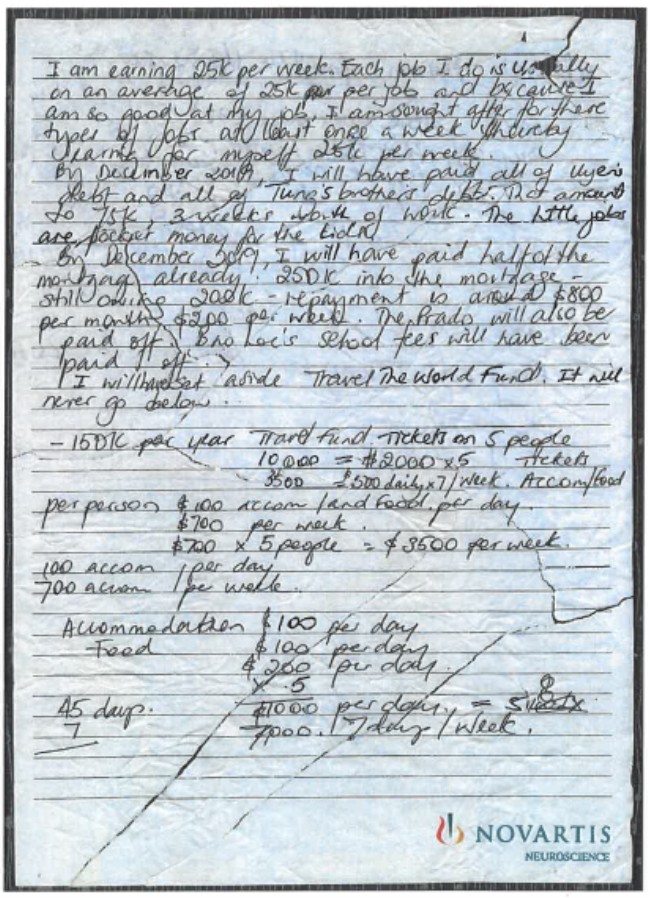 I am earning 25k per week. Each job I do is usually
on an average of 25k per per job and because I
am so good at my job, I am sought after for these
types of jobs at least once a week thereby
earning for myself 25k per week.
By December 2019, I will have paid all of Uyen's
debt and all of Tung's brothers debt. That amount
to 75k, 3 weeks worth of work. The little jobs
are pocket money for the kids.
By December 2019, I will have paid half of the
mortgage already. 250k into the mortgage -
still owing 200k - repayment is around $800
per month, $200 per week. The Prado will also be
paid off. Bao Loc's school fees will have been
paid off.
I will have set aside Travel The World Fund. It will
never go below.
- 150k per year Travel fund. Tickets on 5 people
10000 = $2000 x 5 Tickets
3500 £500 daily x 7 / week. Accom/Food
per person $100 accom / and food. per day.
$700 per week.
$700 x 5 people = $3500 per week.
100 accom / per day
700 accom / per week.
Accommodation $100 per day
Food $100 per day
$200 per day.
x 5
45 days. $1000 per day. =
7 7000. / 7 days / week.
NOVARTIS
NEUROSCIENCE